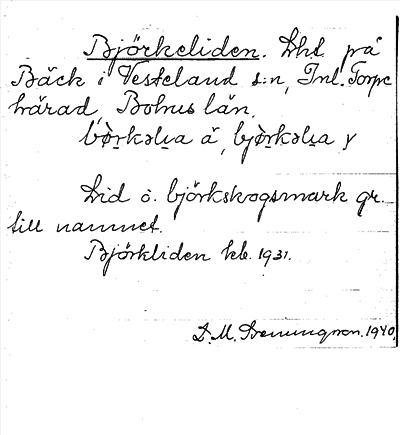 Björkeliden. Lht. på
Bäck i Västerland s:n, Inl. Torpe
härad, Bohus län.
bò̠rkəlia ä, bjò̠rkəlia y
Lid o. björkskogsmark gr.
till namnet.
Björkliden kb. 1931.
D.M. 1940.